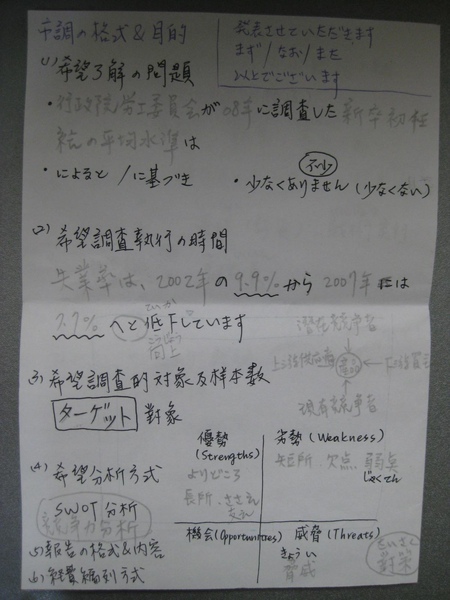 市調の格式&目的
発表させていただきます
まず/なお/また
以上でございます
(1)希望了解の問題
・行政院労工委員会が08年に調査した新卒初任
給の平均水準は
・によると/に基づき
不少
・少なくありません(少なくない)
(2)希望調査執行の時間
失業率は、2002年の9.9%から2007年には
7.7%へと低下しています
ていか
潜在競争者
(3)希望調査的対象及样本数
現有競争者
ターゲット 對象
(4)希望分析方式
SWOT分析
競争力分析
優勢
(Strengths)
よりどころ
長所、ささえ
劣勢(Weakness)
短所、欠点 弱点
じゃくてん
機会(Opportunities)
威脅(Threats)
きょうい
脅威
たいさく
対策
(5)報告の格式&内容
(6)経費編列方式